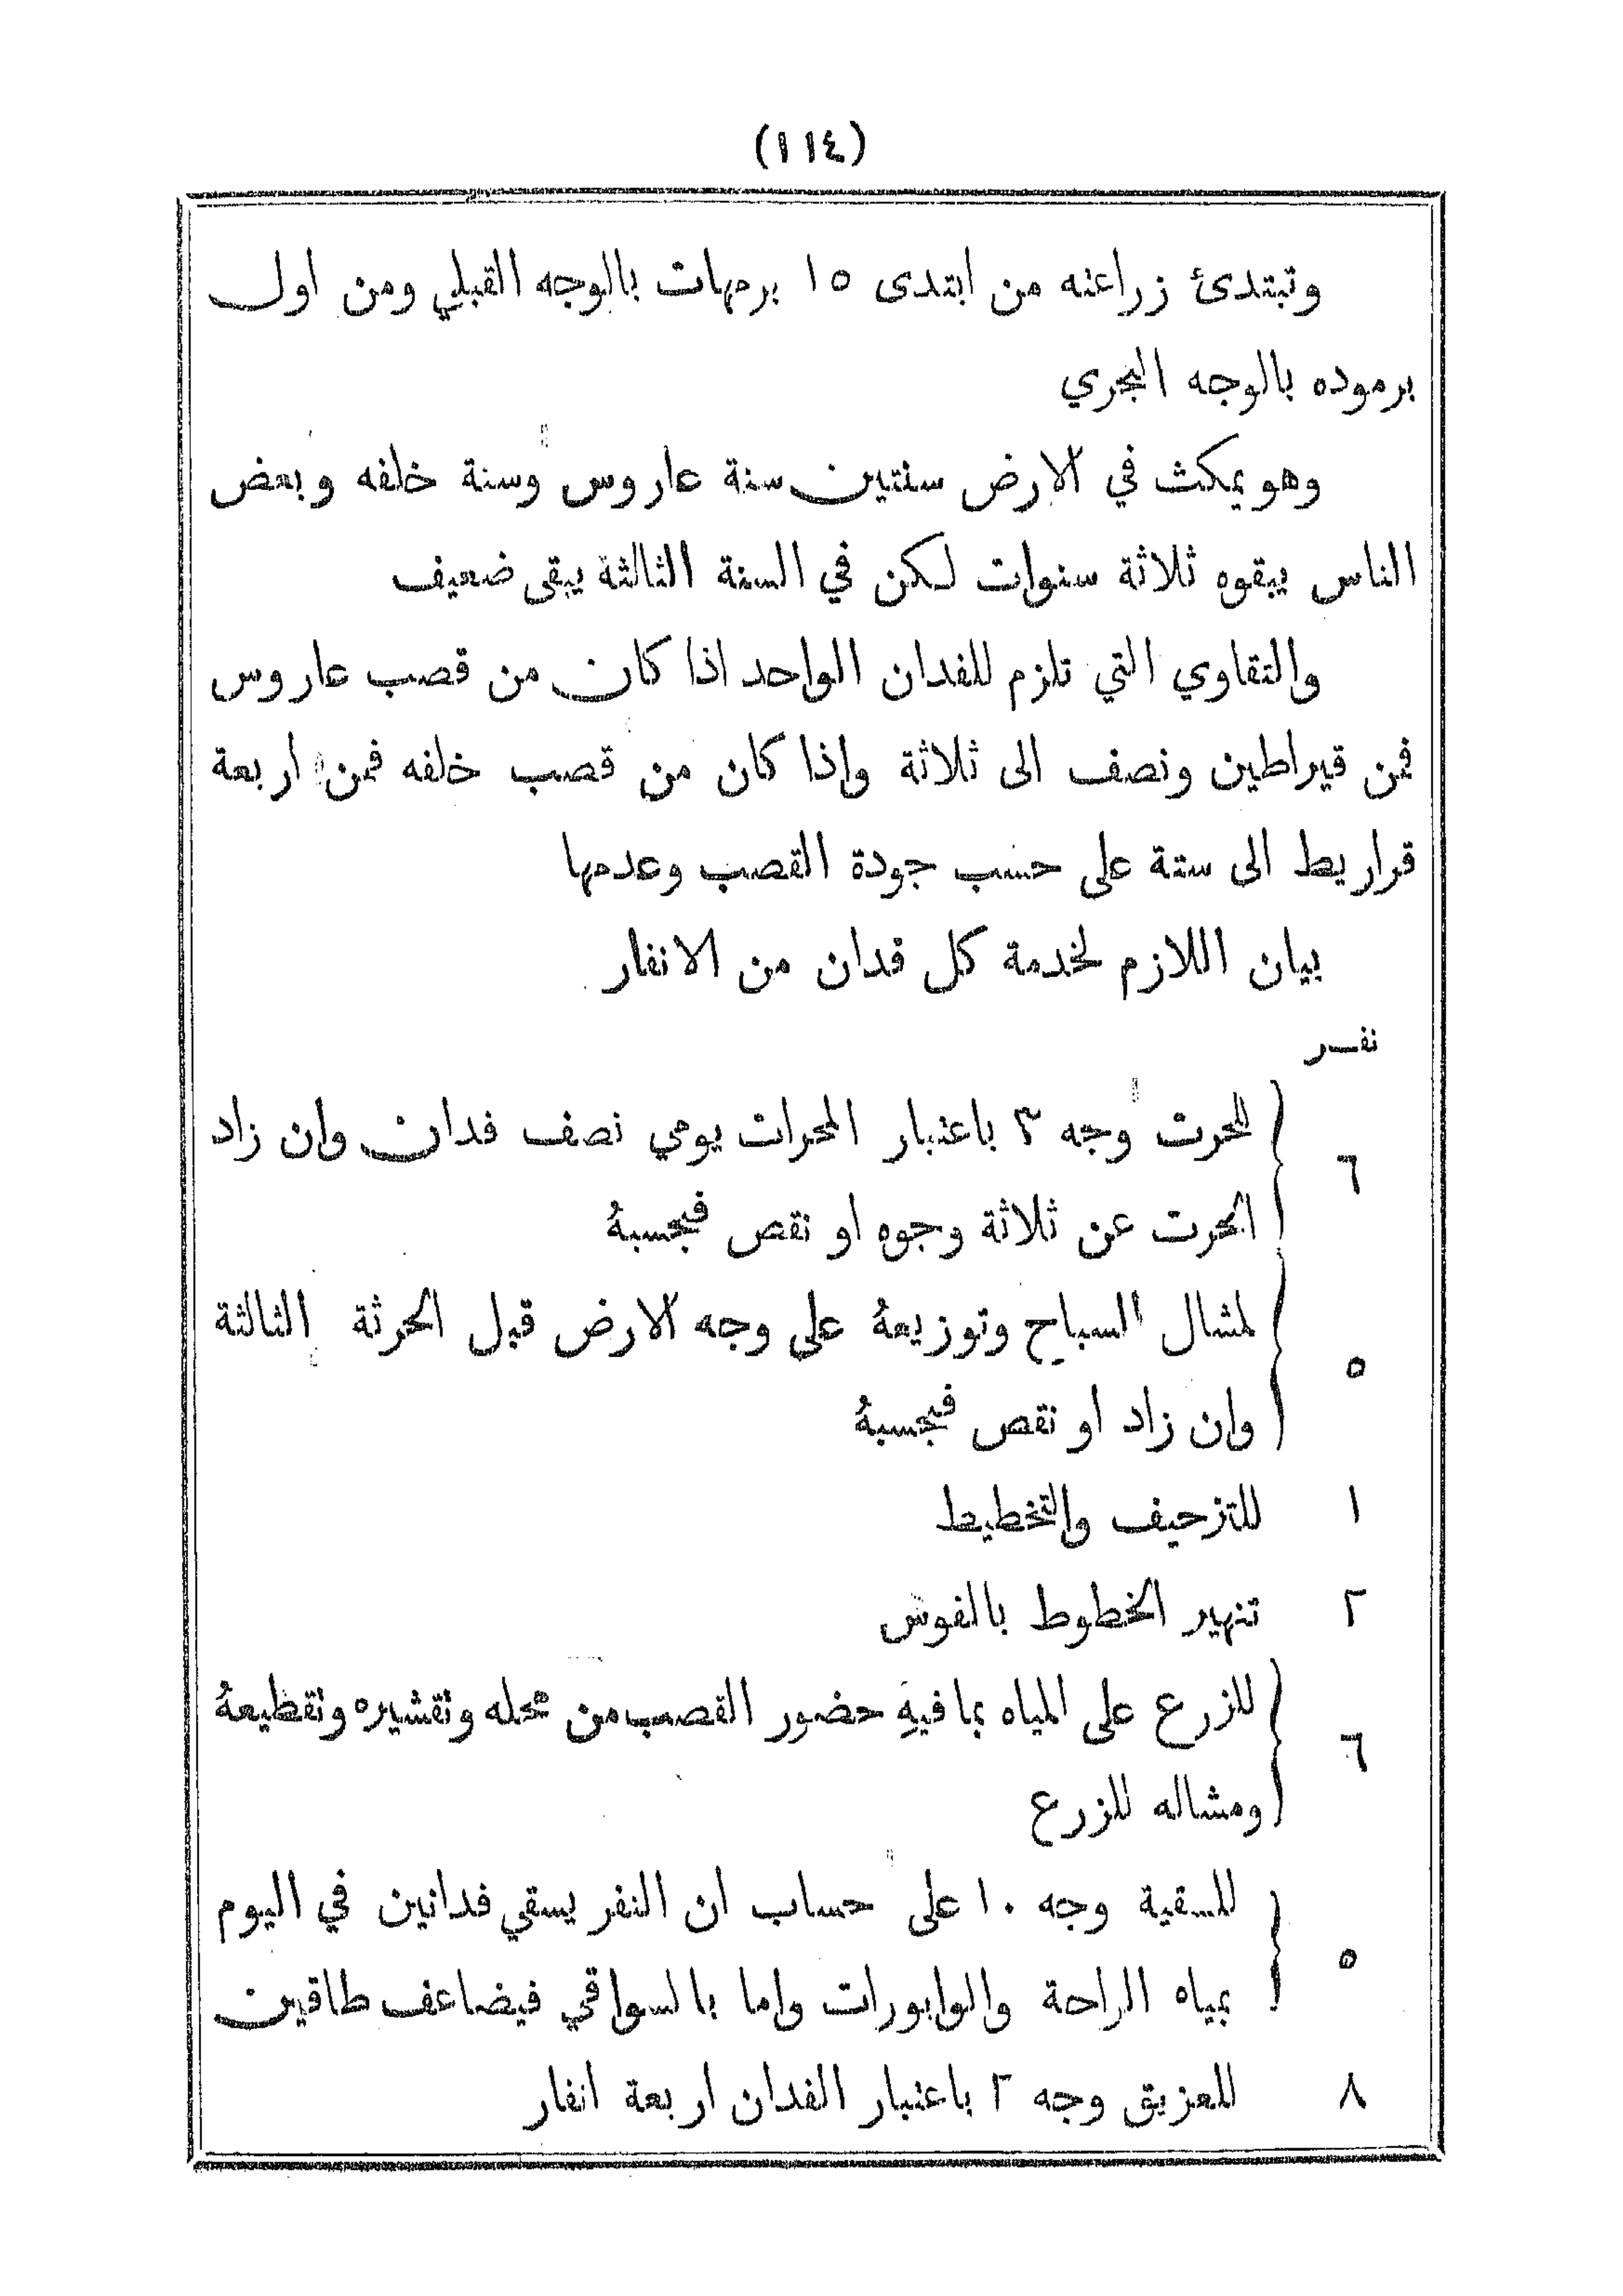 (١١٤)
وتبتدئ زراعنه من ابتدى ١٥ برمهات بالوجه القبلي ومن اول
برموده بالوجه البحري
وهو يمكث في الارض سنتين سنة عاروس وسنة خلفه وبعض
الناس يبقوه ثلاثة سنوات لكن في السنة الثالثة يبقى ضعيف
والتقاوي التي تلزم للفدان الواحد اذا كان من قصب عاروس
فمن قيراطين ونصف الى ثلاثة واذا كان من قصب خلفه فمن اربعة
قراريط الى ستة على حسب جودة القصب وعدمها
بيان اللازم لخدمة كل فدان من الانفار
نفر
٦ للحرت وجه ٣ باعتبار المحرات يومي نصف فدان وان زاد
الحرت عن ثلاثة وجوه او نقص فبحسبهُ
٥ لمشال السباح وتوزيعهُ على وجه الارض قبل الحرثة الثالثة
وان زاد او نقص فبحسبهُ
١ للتزحيف والتخطيط
٢ تنهير الخطوط بالفوس
٦ للزرع على المياه بما فيهِ حضور القصب من محله ونقشيره ونقطيعهُ
ومشاله للزرع
٥ للسقية وجه ١٠ على حساب ان النفر يسقي فدانين في اليوم
بمياه الراحة والوابورات واما بالسواقي فيضاعف طاقين
٨ للعزيق وجه ٢ باعتبار الفدان اربعة انفار